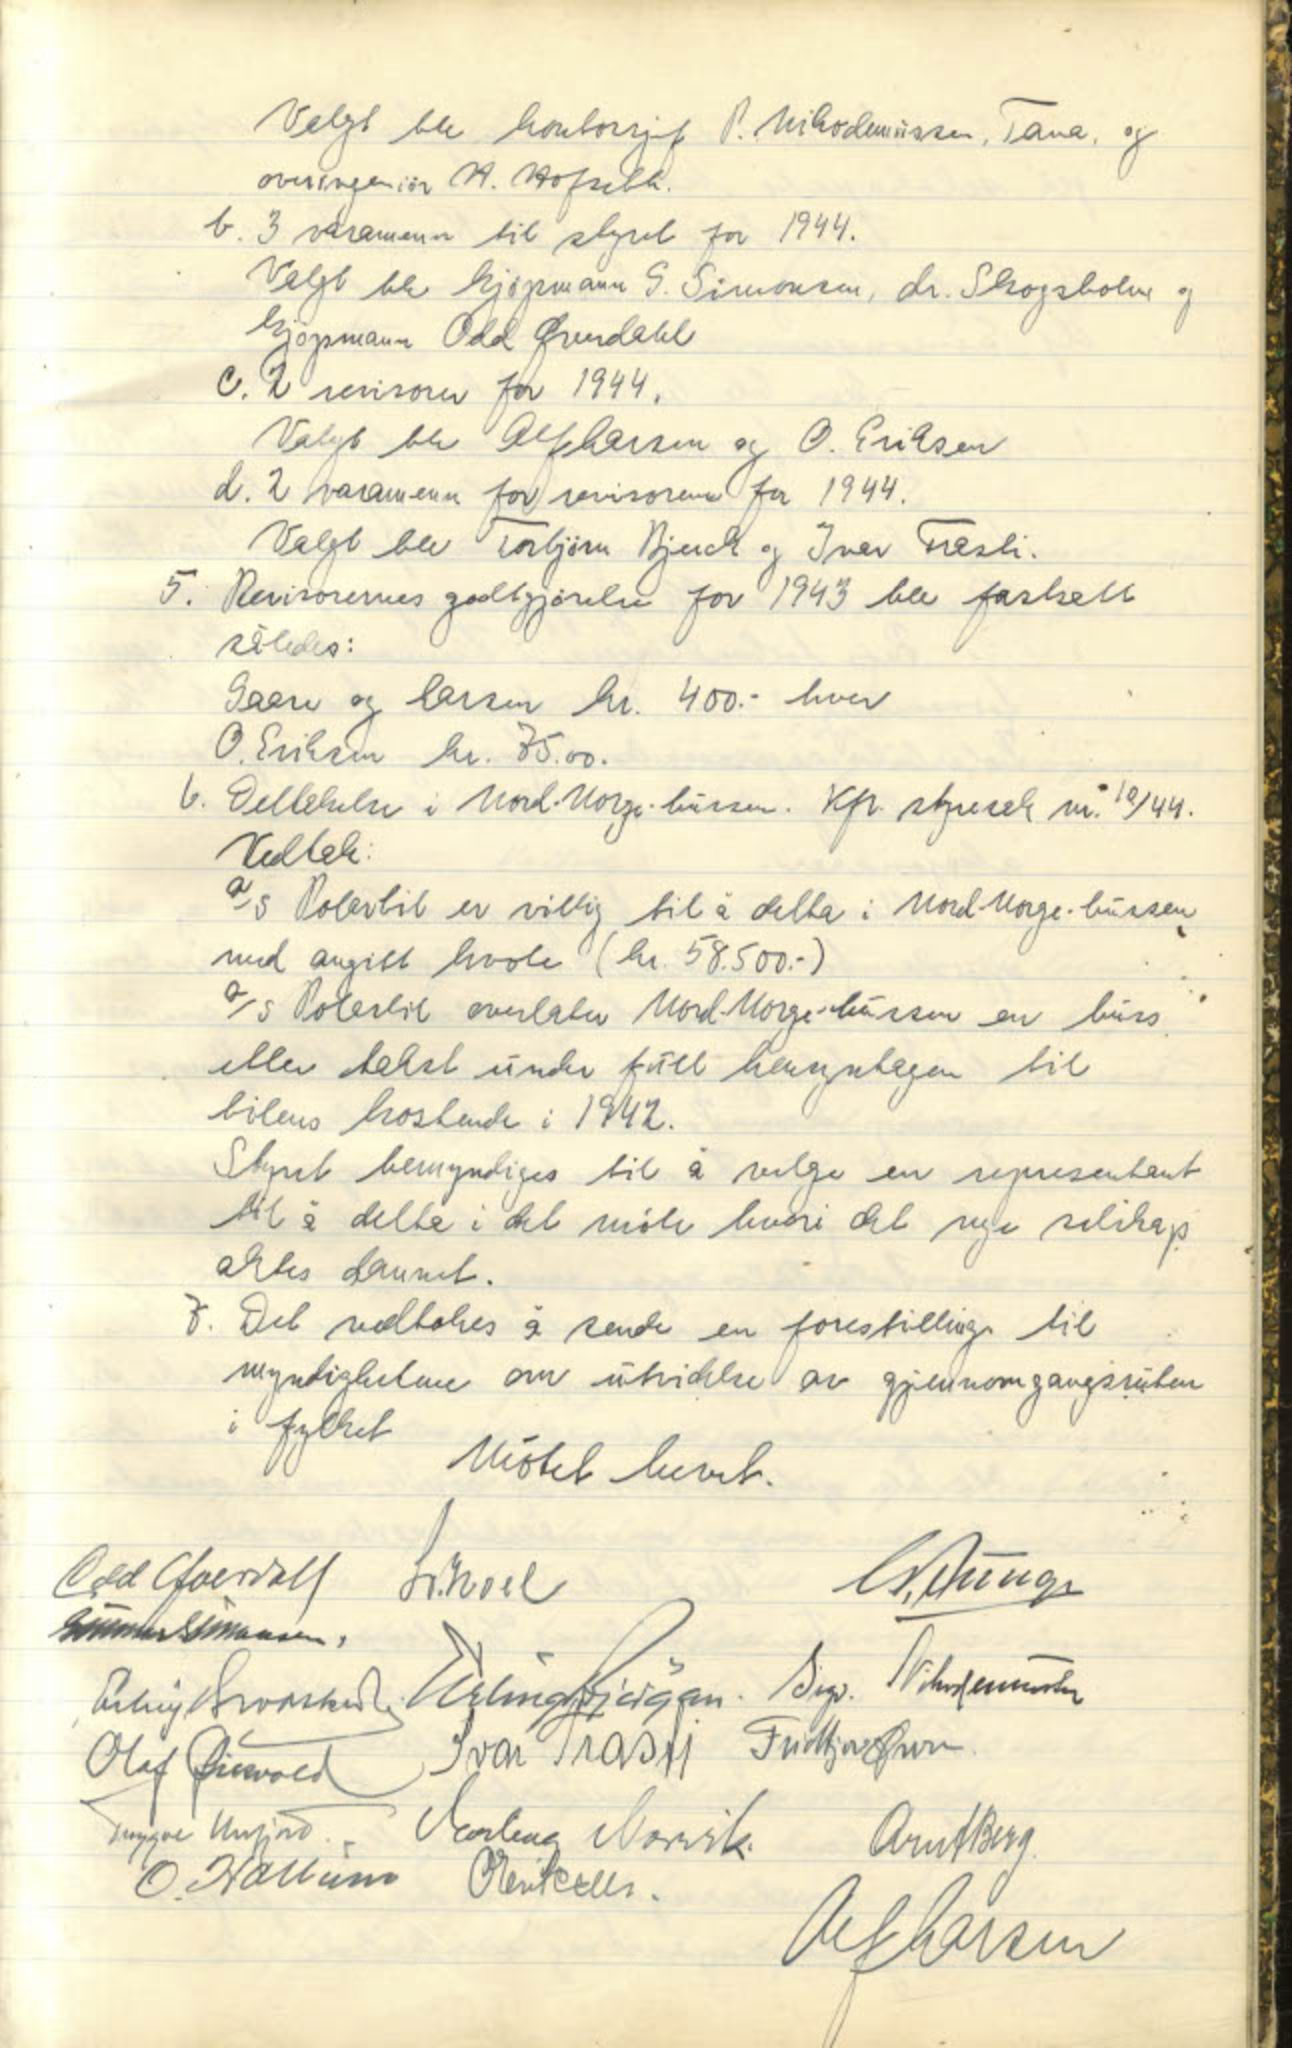 Valgt ble kontorsjef P. Nikodemussen, Tana, og
overingeniør H. Hofseth.
b. 3 varamenn til styret for 1944.
Valgt ble kjøpmann G. Simonsen, dr. Skogsholm og
kjøpmann Odd Øverdahl
c. 2 revisorer for 1944.
Valgt ble Alf Larsen og O. Eriksen
d. 2 varamenn for revisorene for 1944.
Valgt ble Torbjørn Bjerck og Ivar Træsti.
5. Revisorernes godtgjørelse for 1943 ble fastsatt
således:
Gaare og Larsen kr. 400.- hver
O. Eriksen kr. 75.00.
6. Deltakelse i Nord-Norge-bussen. Kfr. styresak nr. 10/44.
Vedtak:
a/s Polarbil er villig til å delta i Nord-Norge-bussen
med angitt kvote (kr. 58.500.-)
a/s Polarbil overlater Nord-Norge-bussen en buss
etter takst under full hensyntagen til
bilens kostende i 1942.
Styret bemyndiges til å velge en representant
til å delta i det møte hvori det nye selskap
aktes dannet.
7. Det vedtakes å sende en forestilling til
myndighetene om utvidelse av gjennomgangsruten
i fylket
Møtet hevet.
Odd Øverdahl
Gunnar Simonsen.
Erling
Sigv. Nikodemussen
Olaf
Ivar Træsti
Fridtjov
Trygve
Norvik.
Arnt Berg.
O. Hallum
O Eriksen.
Alf Larsen